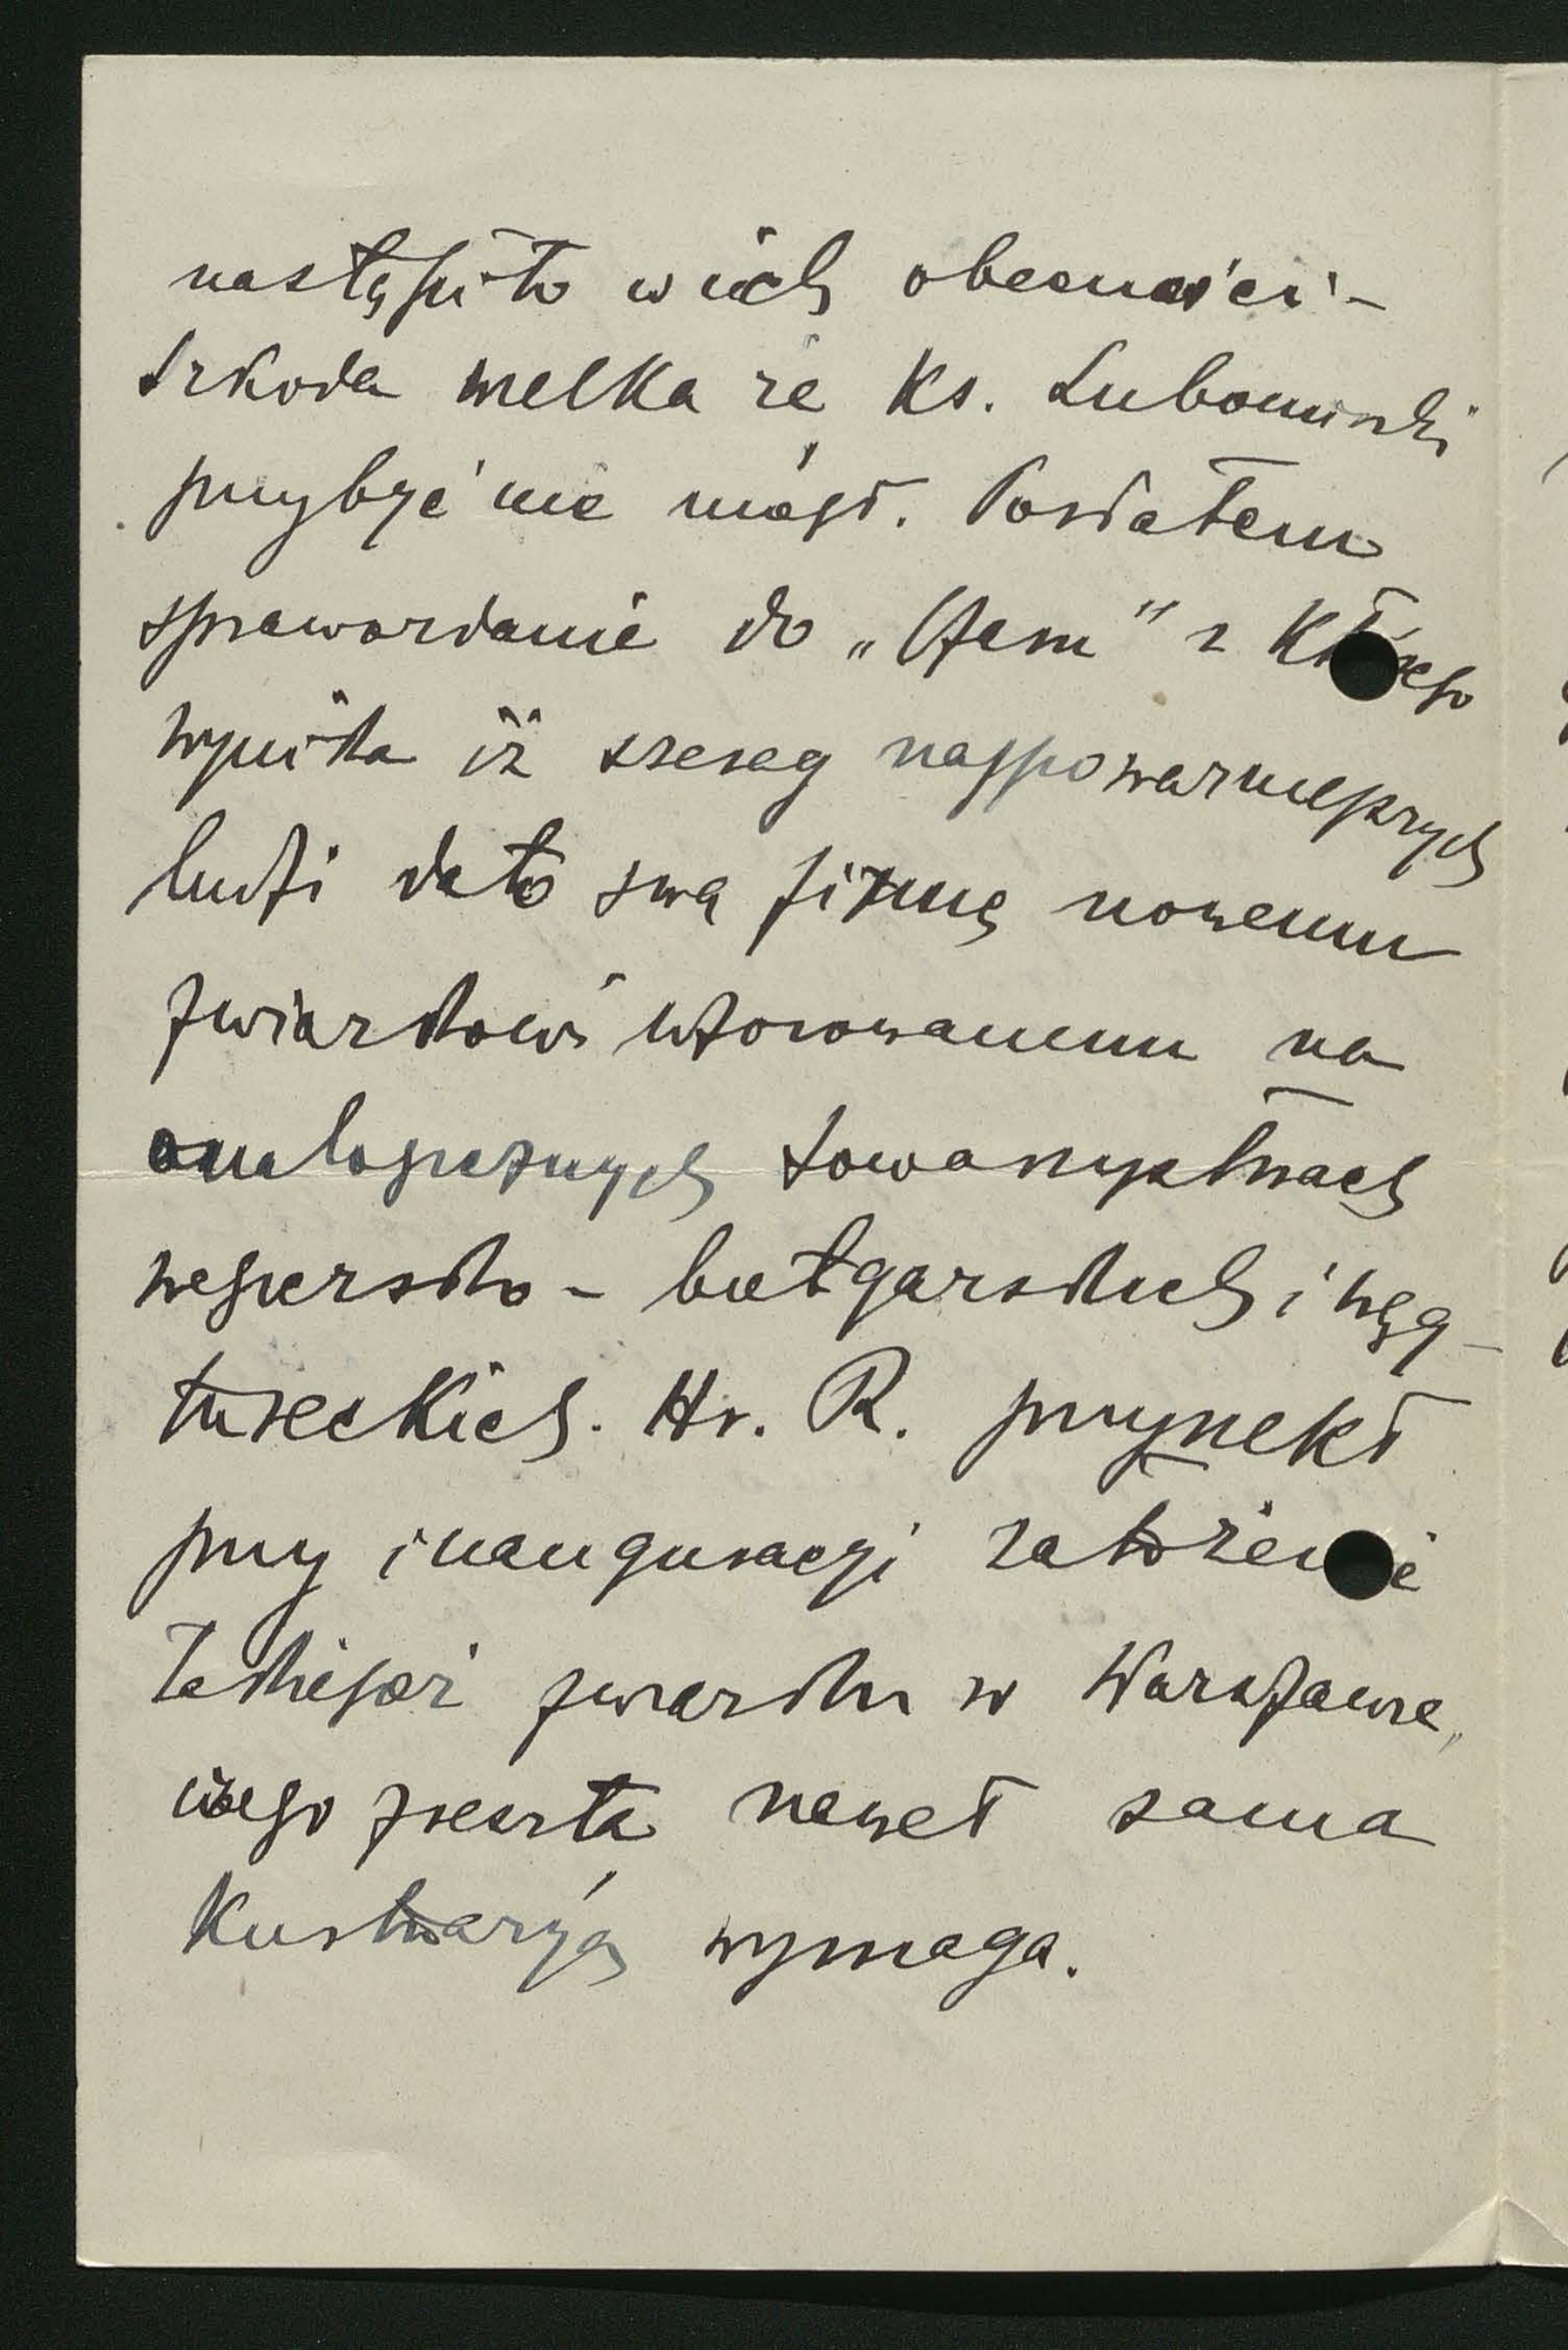 nastąpiło w ich obecności –
szkoda wielka że Ks. Lubomirski
przybyć nie mógł. Posłałem
sprawozdanie do „Czasu" z którego
wynika iż szereg najpoważniejszych
ludzi dało swą firmę nowemu
związkowi wzorowanemu na
analogicznych towarzystwach
węgiersko – bułgarskich i węg –
tureckich. Hr. R. przyrzekł
przy inauguracyi założenie
takiegoż związku w Warszawie,
czego zresztą nawet sama
wymaga.